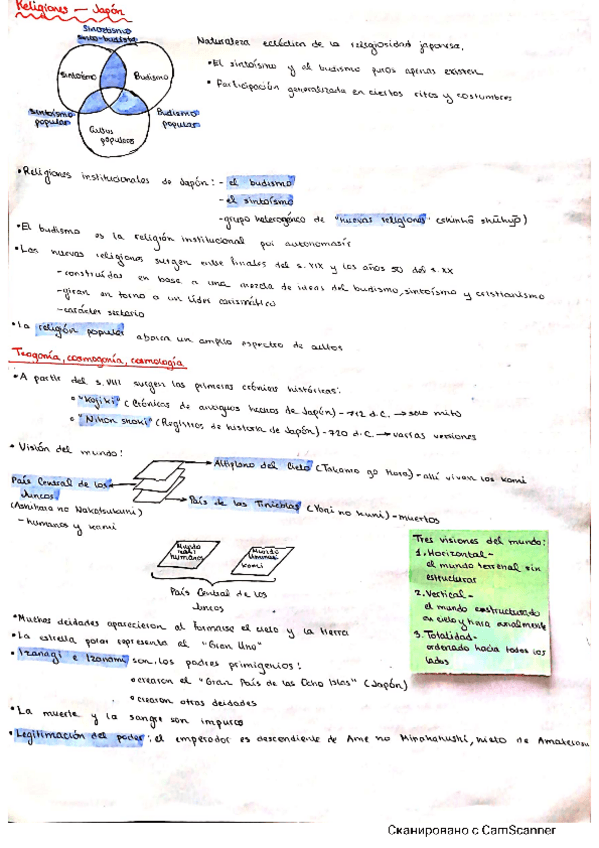 Religiones — Japón
Sincretismo
sinto-budista
Sintoísmo
Budismo
Sintoísmo popular
Budismo popular
Cultos populares
Naturaleza ecléctica de la religiosidad japonesa.
• El sintoísmo y el budismo puros apenas existen
• Participación generalizada en ciertos ritos y costumbres
• Religiones institucionales de Japón: - el budismo
- el sintoísmo
- grupo heterogéneo de "nuevas religiones" (shinkō shūkyō)
• El budismo es la religión institucional por autonomasia
• Las nuevas religiones surgen entre finales del s. XIX y los años 50 del s. XX
- construidas en base a una mezcla de ideas del budismo, sintoísmo y cristianismo
- giran en torno a un líder carismático
- carácter sectario
• La religión popular abarca un amplio espectro de cultos
Teogonía, cosmogonía, cosmología
• A partir del s. VIII surgen las primeras crónicas históricas:
"Kojiki" (Crónicas de antiguos hechos de Japón) - 712 d.C. → solo mito
"Nihon shoki" (Registros de historia de Japón) - 720 d.C. → varias versiones
• Visión del mundo:
Altiplano del Cielo (Takama go Hara) - allí viven los kami
País Central de los Juncos
(Ashihara no Nakatsukuni)
- humanos y kami
País de las Tinieblas (Yomi no kuni) - muertos
Mundo humanos
Mundo kami
País Central de los Juncos
Tres visiones del mundo:
1. Horizontal -
el mundo terrenal sin
estructurar
2. Vertical -
el mundo estructurado
3. Totalidad -
ordenado hacia todos los
lados
• Muchas deidades aparecieron al formarse el cielo y la tierra
• La estrella polar representa al "Gran Uno"
• Izanagi e Izanami son los padres primigenios:
crearon el "Gran País de las Ocho Islas" (Japón)
crearon otras deidades
• La muerte y la sangre son impuros
• Legitimación del poder: el emperador es descendiente de Ame no Minakanushi, nieto de Amaterasu
Сканировано с CamScanner